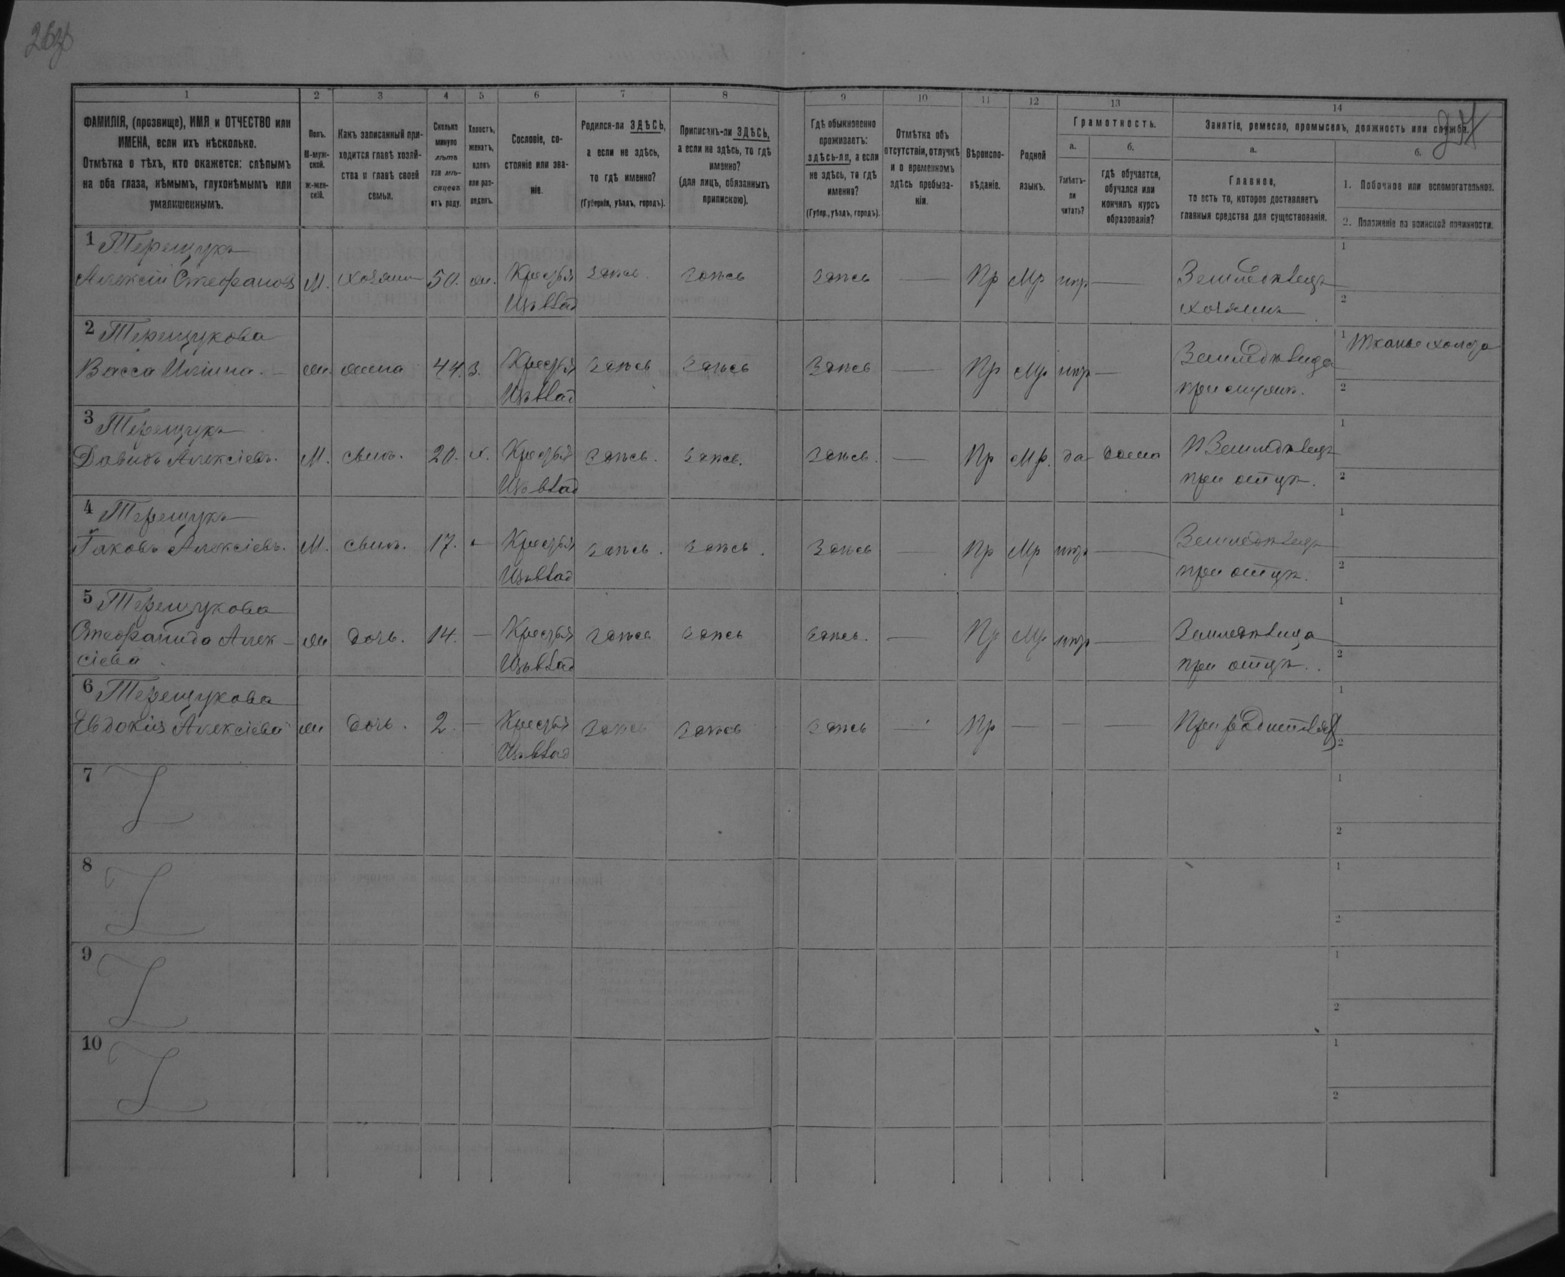 1
2
3
4
5
6
7
8
9
10
11
12
13
14
ФАМИЛІЯ, (прозвище), ИМЯ и ОТЧЕСТВО или
ИМЕНА, если ихъ нѣсколько.
Отмѣтка о тѣхъ, кто окажется: слѣпымъ
на оба глаза, нѣмымъ, глухонѣмымъ или
умалишеннымъ.
Полъ.
М-муж-
ской.
ж-жен-
скій.
Какъ записанный при-
ходится главѣ хозяй-
ства и главѣ своей
семьи.
Сколько
минуло
лѣтъ
или мѣ-
сяцевъ
отъ роду.
Холостъ,
женатъ,
вдовъ
или раз-
веденъ.
Сословіе, со-
стояніе или зва-
ніе.
Родился-ли ЗДѢСЬ,
а если не здѣсь,
то гдѣ именно?
(Губернія, уѣздъ, городъ).
Приписанъ-ли ЗДѢСЬ,
а если не здѣсь, то гдѣ
именно?
(для лицъ, обязанныхъ
припискою).
Гдѣ обыкновенно
проживаетъ:
здѣсь-ли, а если
не здѣсь, то гдѣ
именно?
(Губер., уѣздъ, городъ).
Отмѣтка объ
отсутствіи, отлучкѣ
и о временномъ
здѣсь пребыва-
ніи.
Вѣроиспо-
вѣданіе.
Родной
языкъ.
Грамотность.
а.
Умѣетъ-
ли
читать?
б.
гдѣ обучается,
обучался или
кончилъ курсъ
образованія?
Занятіе, ремесло, промыселъ, должность или служба.
а.
Главное,
то есть то, которое доставляетъ
главныя средства для существованія.
б.
1. Побочное или вспомогательное.
2. Положеніе по воинской повинности.
1 Терещукъ
Алексій Стефановъ М. хозяинъ 50. Крестья здѣсь. здѣсь здѣсь — Пр Мр — Земледѣлецъ 1
хозяинъ 2
2 Терещукова 1 Тканье холста
Васса жена 44. з. Крестья здѣсь здѣсь здѣсь — Пр Мр — Земледѣлица
2
3 Терещукъ 1
Давидъ Алексіевъ. М. сынъ. 20. х. Крестья здѣсь. здѣсь. здѣсь. — Пр Мр. да Земледѣлецъ
при отцѣ. 2
4 Терещукъ 1
Іаковъ Алексіевъ. М. сынъ. 17. Крестья здѣсь. здѣсь. здѣсь — Пр Мр — Земледѣлецъ
при отцѣ. 2
5 Терещукова 1
Стефанида Алек- дочь. 14. — Крестья здѣсь здѣсь здѣсь. — Пр Мр — Земледѣлица
сіева. при отцѣ. 2
6 Терещукова 1
Евдокія Алексіева дочь. 2. — Крестья здѣсь здѣсь здѣсь — Пр — — —
2
7 1
2
8 1
2
9 1
2
10 1
2